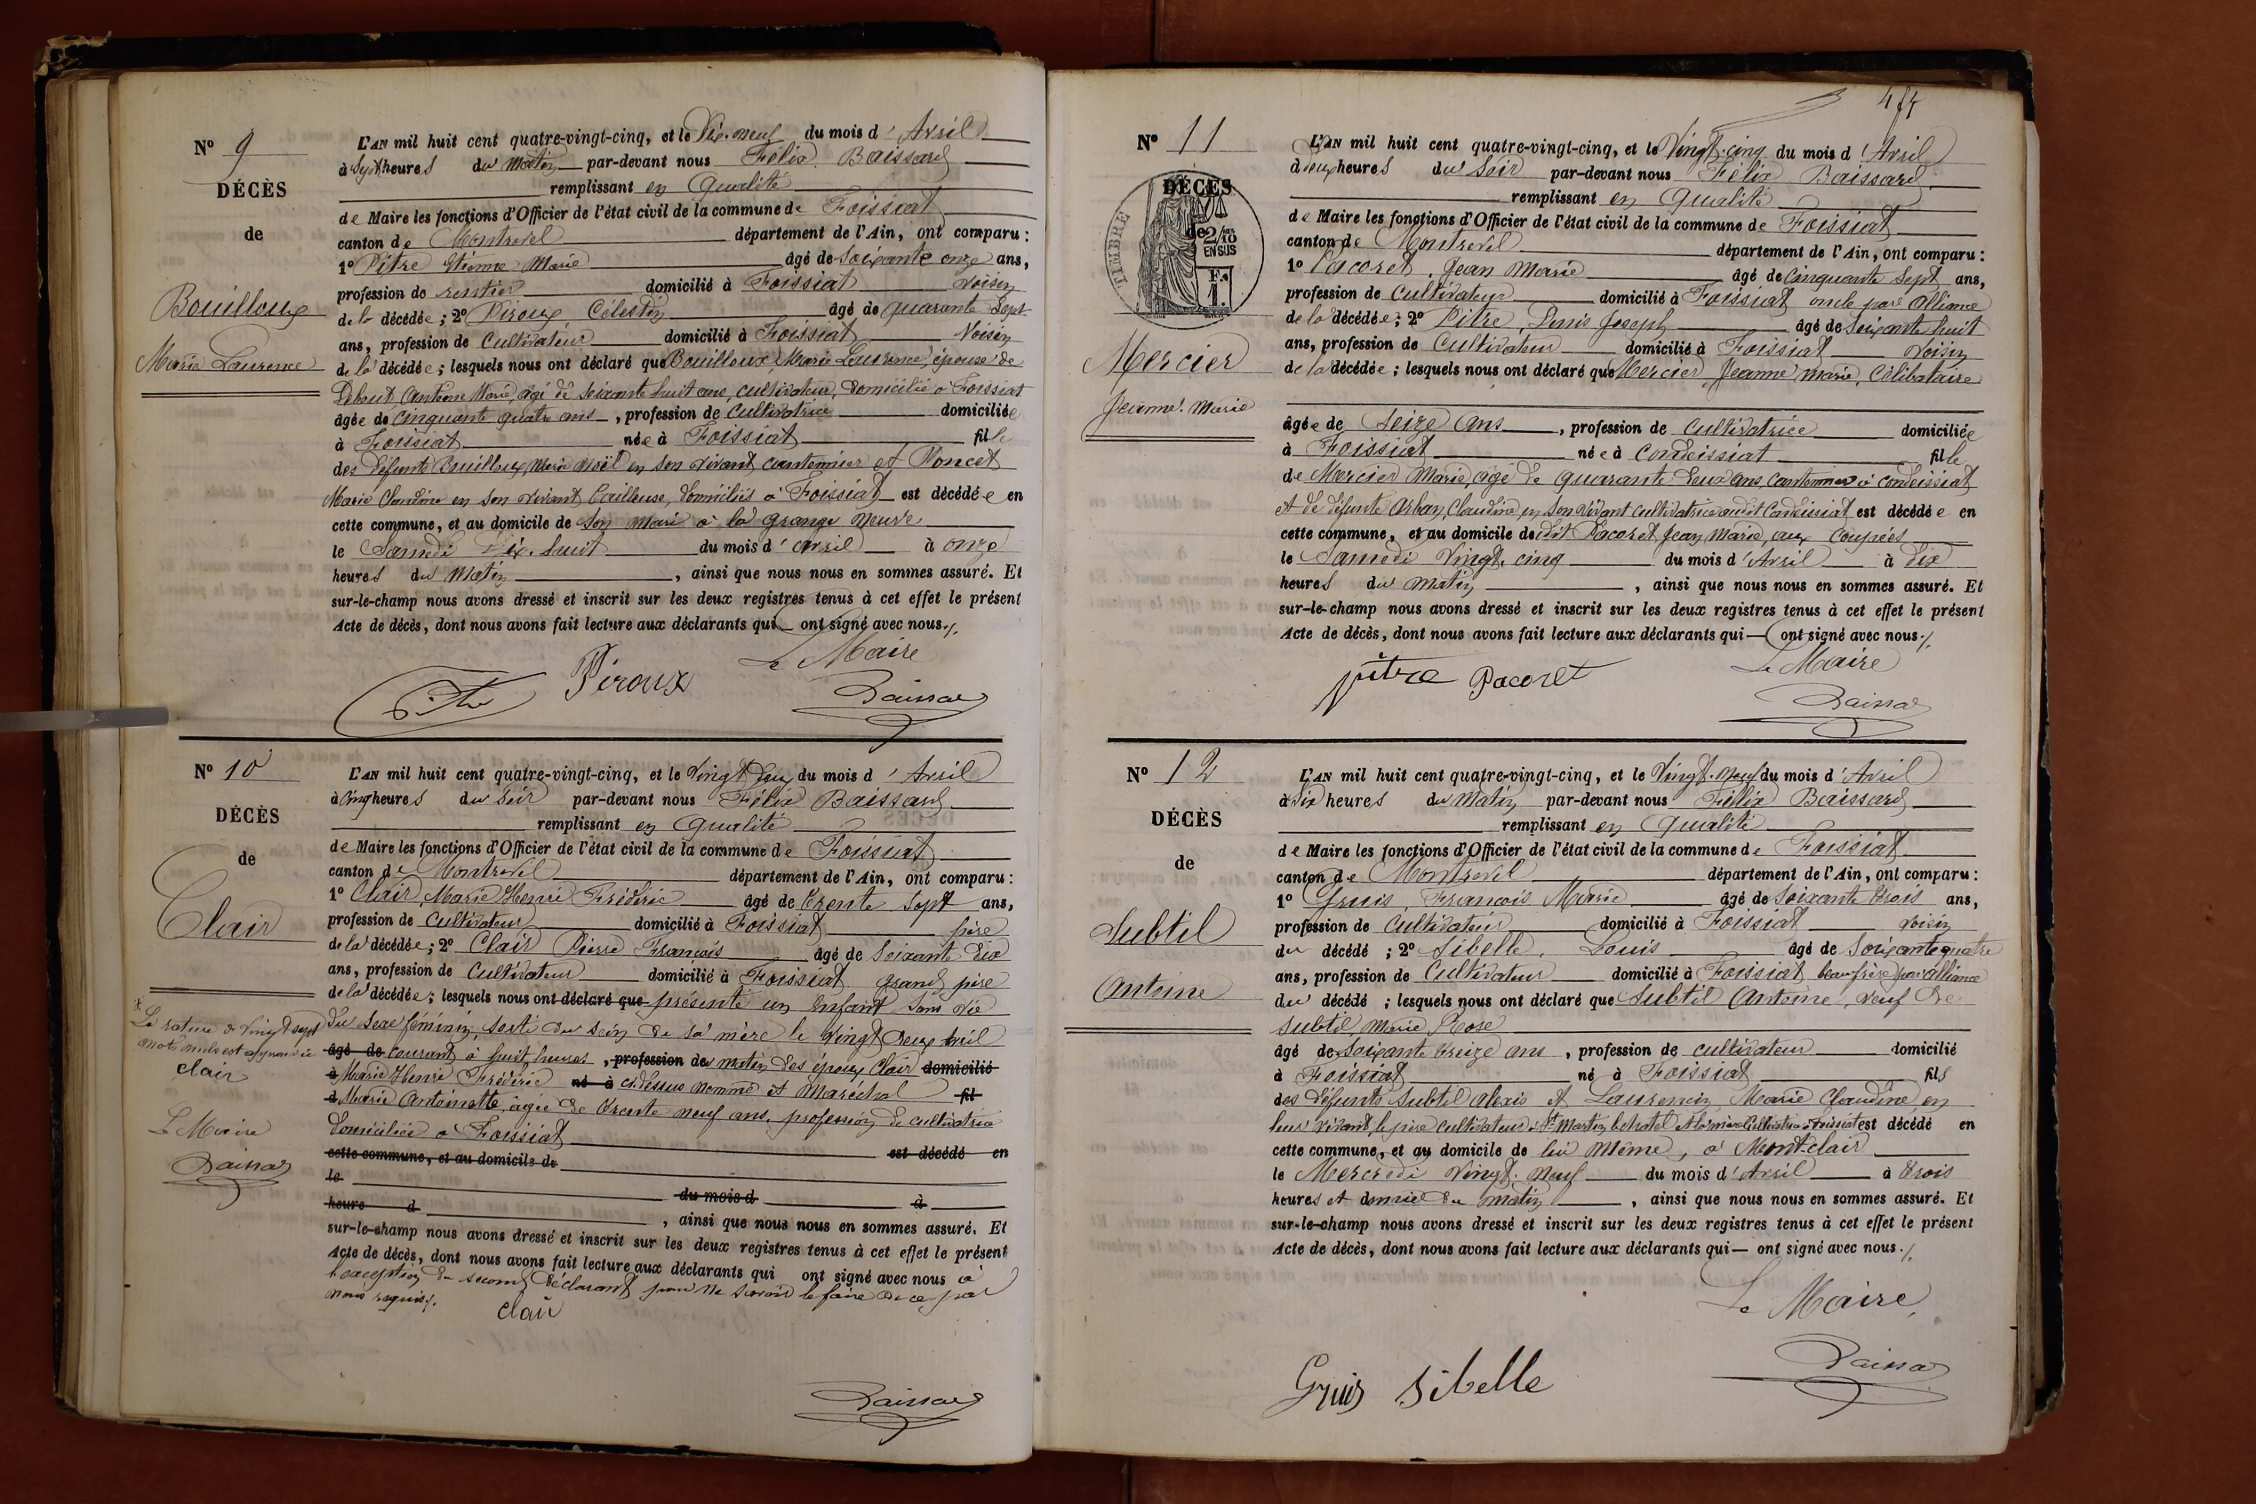 N° 9
DÉCÈS
de
Bouilloux
Marie Laurence
L'AN mil huit cent quatre-vingt-cinq, et le Dix-neuf du mois d'Avril
à Sept heures du Matin par-devant nous Félix Baissard
remplissant en Qualité
de Maire les fonctions d'Officier de l'état civil de la commune de Foissiat
canton de Montrevel département de l'Ain, ont comparu :
1° Pitre Etienne Marie âgé de Soixante onze ans,
profession de rentier domicilié à Foissiat Voisin
de la décédée ; 2° Piroux Célestin âgé de quarante Sept
ans, profession de Cultivateur domicilié à Foissiat Voisin
de la décédée ; lesquels nous ont déclaré que Bouilloux, Marie Laurence, épouse de
Antoine Marie, âgé de Soixante huit ans, cultivateur, domicilié à Foissiat
âgée de Cinquante quatre ans, profession de Cultivatrice domiciliée
à Foissiat née à Foissiat fille
des défunts Bouilloux Marie Noël en son vivant cantonnier et Poncet
Marie Claudine en son vivant domiciliés à Foissiat est décédée en
cette commune, et au domicile de son mari à la grange neuve
le Samedi Dix-huit du mois d'avril à onze
heures du Matin, ainsi que nous nous en sommes assuré. Et
sur-le-champ nous avons dressé et inscrit sur les deux registres tenus à cet effet le présent
Acte de décès, dont nous avons fait lecture aux déclarants qui ont signé avec nous ./.
Le Maire
Piroux
Baissard
N° 10
DÉCÈS
de
Clair
L'AN mil huit cent quatre-vingt-cinq, et le Vingt Deux du mois d'Avril
à Cinq heures du Soir par-devant nous Félix Baissard
remplissant en Qualité
de Maire les fonctions d'Officier de l'état civil de la commune de Foissiat
canton de Montrevel département de l'Ain, ont comparu :
1° Clair Marie Henri Frédéric âgé de Trente Sept ans,
profession de Cultivateur domicilié à Foissiat père
de la décédée ; 2° Clair Pierre François âgé de Soixante Dix
ans, profession de Cultivateur domicilié à Foissiat grand père
de la décédée ; lesquels nous ont déclaré que présenté un Enfant Sans Vie
du Sexe féminin, sorti du sein de sa mère le vingt Deux avril
âgé de courant à huit heures, profession de du matin des époux Clair domicilié
à Marie Henri Frédéric né à ci-dessus nommé et Maréchal fil
d Marie Antoinette, âgée de trente neuf ans, profession de cultivatrice
Domiciliée à Foissiat
cette commune, et au domicile de est décédé en
le
du mois d à
heure d
, ainsi que nous nous en sommes assuré. Et
sur-le-champ nous avons dressé et inscrit sur les deux registres tenus à cet effet le présent
Acte de décès, dont nous avons fait lecture aux déclarants qui ont signé avec nous à
l'exception du second Déclarant pour ne savoir le faire de ce par
nous requis ./.
clair
Baissard
La rature de Vingt sept
mots nuls est approuvée
clair
Le Maire
Baissard
4 
N° 11
TIMBRE
2/10 EN SUS
DÉCÈS
de
Mercier
Jeanne Marie
L'AN mil huit cent quatre-vingt-cinq, et le Vingt-cinq du mois d'Avril
à Deux heures du Soir par-devant nous Félix Baissard
remplissant en Qualité
de Maire les fonctions d'Officier de l'état civil de la commune de Foissiat
canton de Montrevel département de l'Ain, ont comparu :
1° Pacoret, Jean Marie âgé de Cinquante Sept ans,
profession de Cultivateur domicilié à Foissiat oncle par alliance
de la décédée ; 2° Pitre, Denis Joseph âgé de Soixante huit
ans, profession de Cultivateur domicilié à Foissiat Voisin
de la décédée ; lesquels nous ont déclaré que Mercier Jeanne Marie, Célibataire
âgée de Seize ans, profession de Cultivatrice domiciliée
à Foissiat née à Condeissiat fille
de Mercier Marie, âgé de quarante Deux ans, Cantonnier à Condeissiat
et de défunte Arban, Claudine, en son vivant Cultivatrice audit Condeissiat est décédée en
cette commune, et au domicile de dit Pacoret Jean Marie, aux
le Samedi Vingt-cinq du mois d'Avril à Dix
heures du Matin, ainsi que nous nous en sommes assuré. Et
sur-le-champ nous avons dressé et inscrit sur les deux registres tenus à cet effet le présent
Acte de décès, dont nous avons fait lecture aux déclarants qui ont signé avec nous ./.
Le Maire
pitre Pacoret
Baissard
N° 12
DÉCÈS
de
Subtil
Antoine
L'AN mil huit cent quatre-vingt-cinq, et le Vingt-Neuf du mois d'Avril
à Dix heures du Matin par-devant nous Félix Baissard
remplissant en Qualité
de Maire les fonctions d'Officier de l'état civil de la commune de Foissiat
canton de Montrevel département de l'Ain, ont comparu :
1° Gruis, François Marie âgé de Soixante trois ans,
profession de Cultivateur domicilié à Foissiat Voisin
du décédé ; 2° Sibelle, Louis âgé de Soixante quatre
ans, profession de Cultivateur domicilié à Foissiat, beau frère par alliance
du décédé ; lesquels nous ont déclaré que Subtil Antoine, veuf De
Subtil, Marie Rose
âgé de Soixante treize ans, profession de cultivateur domicilié
à Foissiat né à Foissiat fils
des défunts Subtil Alexis et Laurencin, Marie Claudine en
leur vivant, le père Cultivateur à St Martin le chatel et la mère Cultivatrice à Foissiat est décédé en
cette commune, et au domicile de lui même, à Mont-clair
le Mercredi Vingt-Neuf du mois d'Avril à trois
heures et demie du matin, ainsi que nous nous en sommes assuré. Et
sur-le-champ nous avons dressé et inscrit sur les deux registres tenus à cet effet le présent
Acte de décès, dont nous avons fait lecture aux déclarants qui ont signé avec nous ./.
Le Maire,
Gruis Sibelle
Baissard